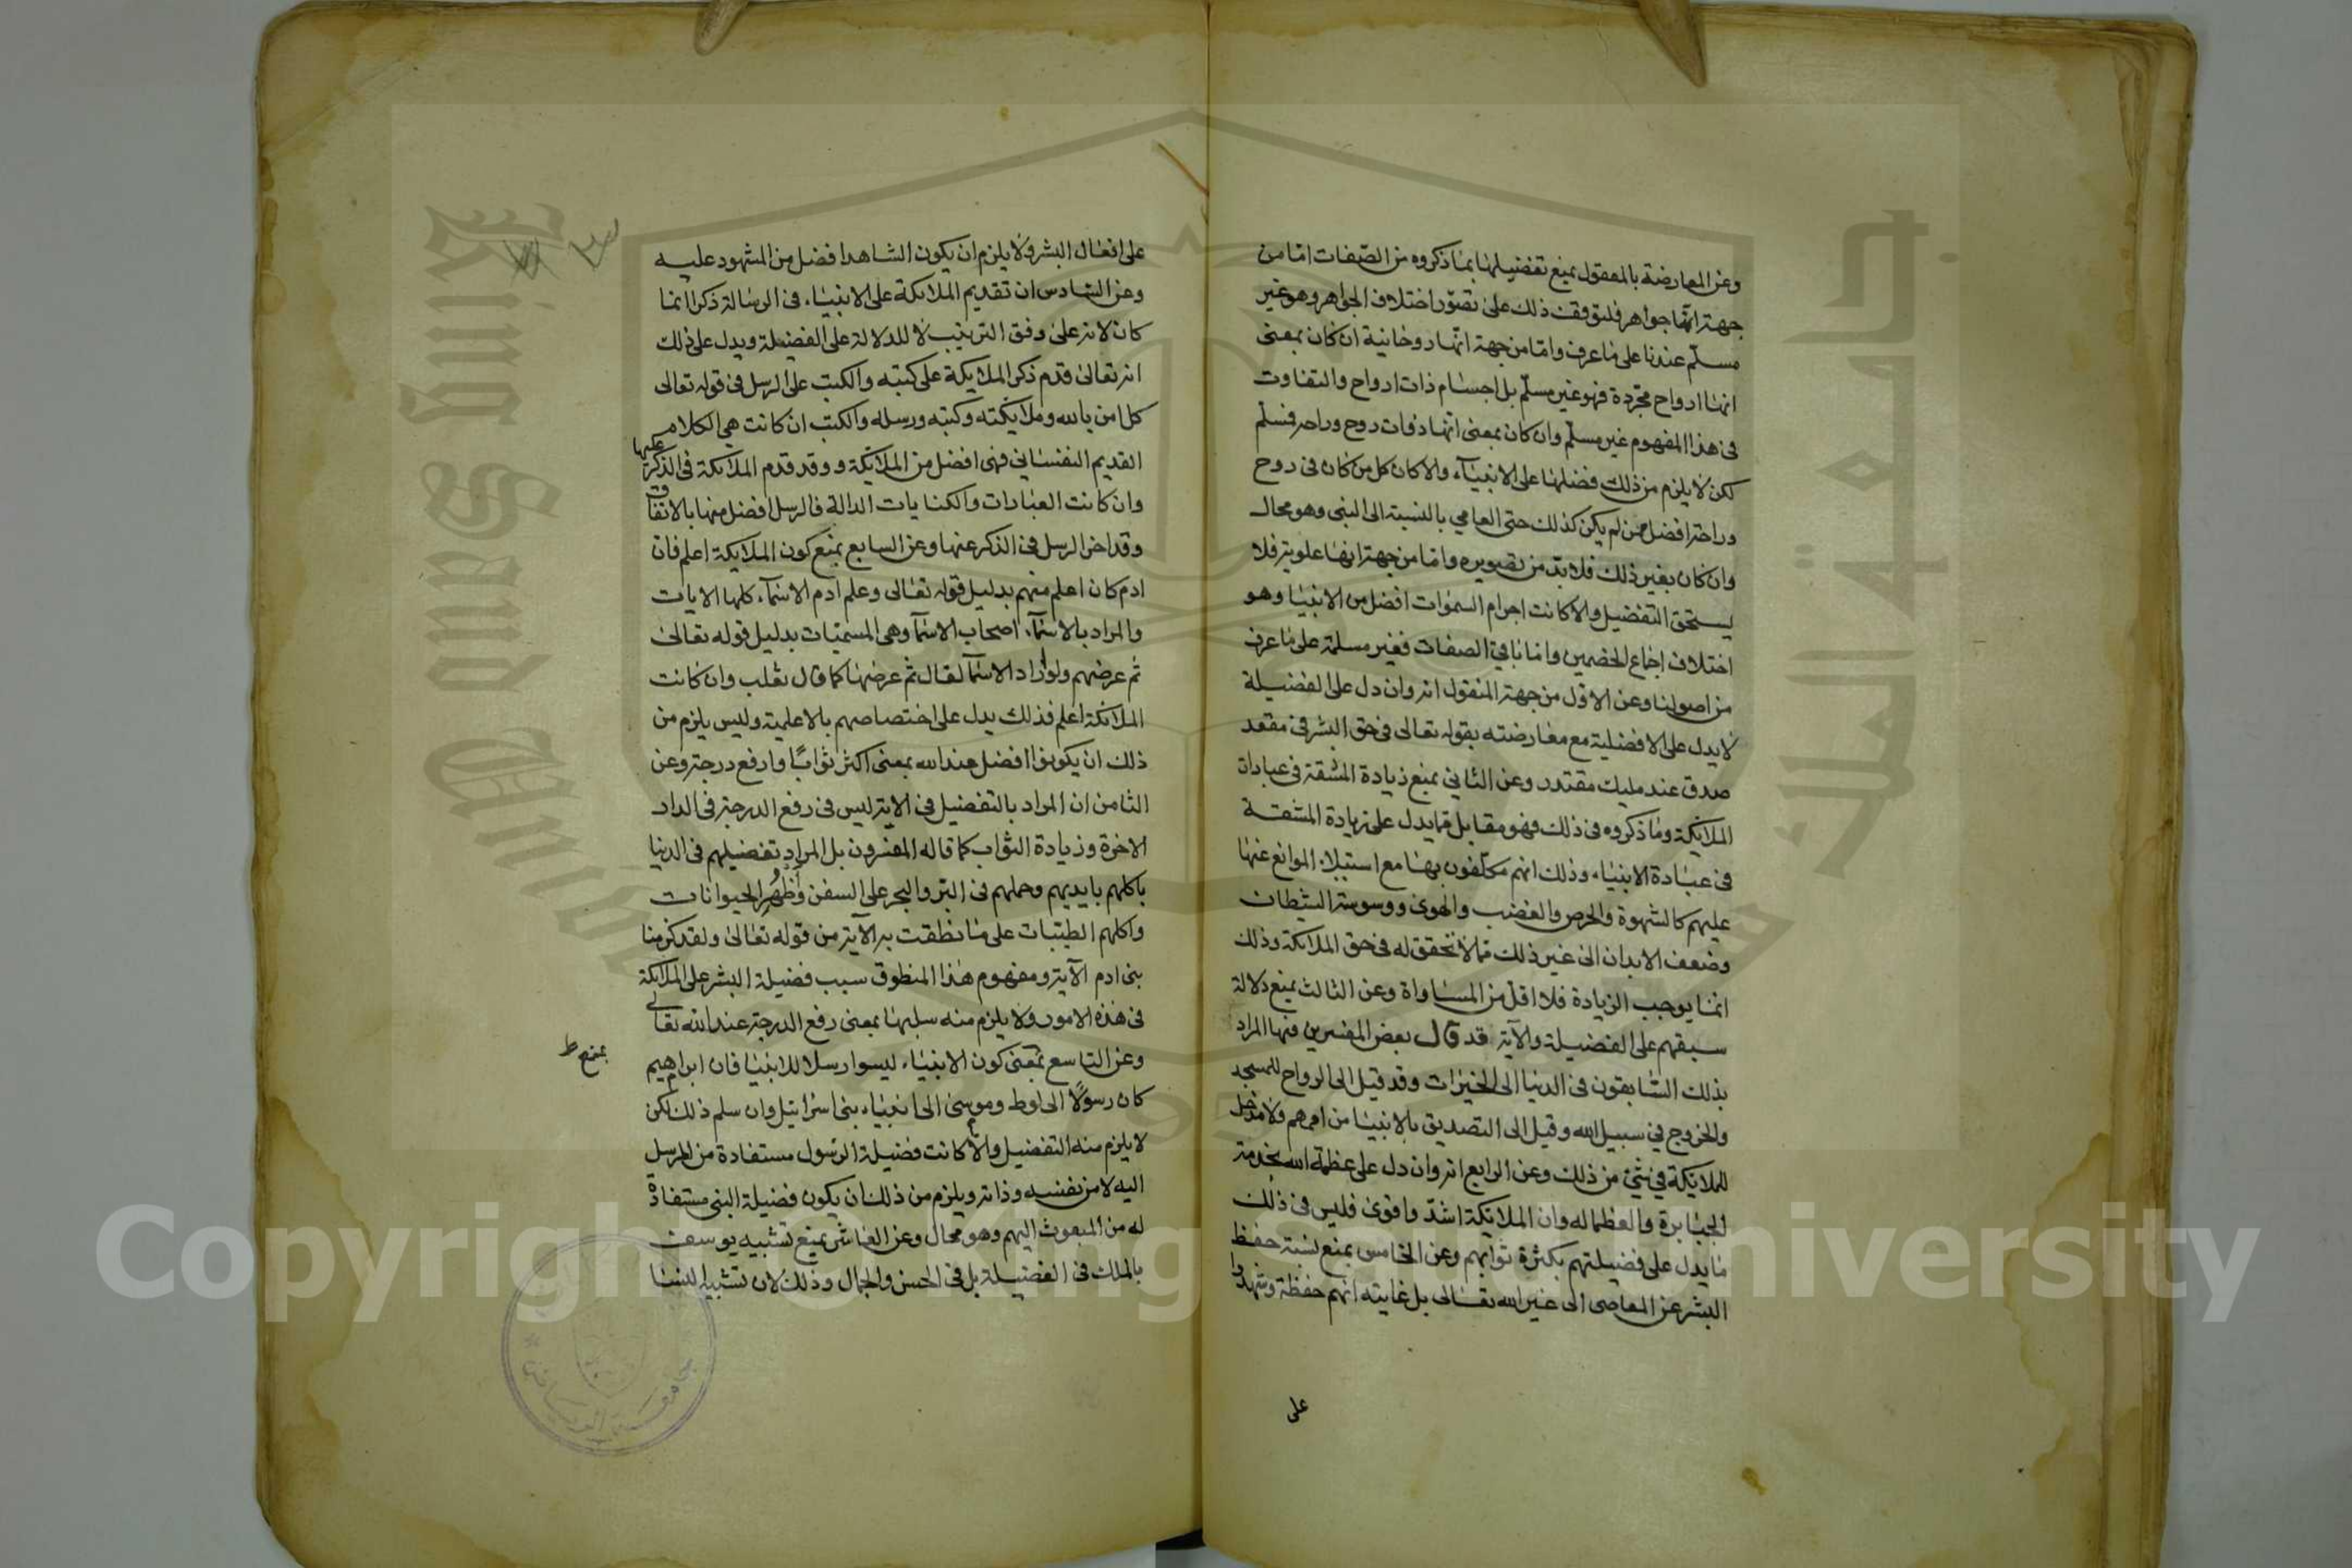 وعن المعارضة بالمعقول بمنع تفضيلها بما ذكروه من الصفات اما من
جهة انها جواهر فلتوقف ذلك على تصور اختلاف الجواهر وهو غير
مسلم عندنا على ما عرف واما من جهة انها روحانية ان كان بمعنى
انها ارواح مجردة فهو غير مسلم بل اجسام ذات ارواح والتفاوت
فى هذا المفهوم غير مسلم وان كان بمعنى انها ذوات روح وراحة فمسلم
لكن لا يلزم من ذلك فضلها على الانبيآء والا كان كل من كان فى روح
وراحة افضل ممن لم يكن كذلك حتى العامي بالنسبة الى النبى وهو محال
وان كان بغير ذلك فلا بد من تصويره واما من جهة انها علوية فلا
يستحق التفضيل والا كانت اجرام السموات افضل من الانبيا وهو
اختلاف اجماع الخصمين واما باقي الصفات فغير مسلمة على ما عرف
من اصولنا وعن الاول من جهة المنقول انه وان دل على الفضيلة
لا يدل على الافضلية مع معارضته بقوله تعالى فى حق البشر فى مقعد
صدق عند مليك مقتدر وعن الثاني بمنع زيادة المشقة فى عبادات
الملائكة وما ذكروه فى ذلك فهو مقابل بما يدل على زيادة المشقة
فى عبادة الانبياء وذلك انهم مكلفون بها مع استيلاء الموانع عنها
عليهم كالشهوة والحرص والغضب والهوى ووسوسة الشيطان
وضعف الابدان الى غير ذلك مما لا تحقق له فى حق الملائكة وذلك
انما يوجب الزيادة فلا اقل من المساواة وعن الثالث بمنع دلالة
سبقهم على الفضيلة والآية قد قال بعض المفسرين منها المراد
بذلك السابقون فى الدنيا الى الخيرات وقد قيل الى الرواح للمسجد
والخروج في سبيل الله وقيل الى التصديق بالانبيا من اممهم ولا مدخل
للملائكة في شئ من ذلك وعن الرابع انه وان دل على عظمة الله بخدمة
الجبابرة والعظما له وان الملائكة اشد واقوى فليس فى ذلك
ما يدل على فضيلتهم بكثرة ثوابهم وعن الخامس بمنع نسبة حفظ
البشر عن المعاصى الى غير الله تعالى بل غايته انهم حفظة وشهدوا
على
على افعال البشر ولا يلزم ان يكون الشاهد افضل من المشهود عليه
وعن السادس ان تقديم الملائكة على الانبياء فى الرسالة ذكرا انما
كان لانه على وفق الترتيب لا للدلالة على الفضيلة ويدل على ذلك
انه تعالى قدم ذكر الملائكة على كتبه والكتب على الرسل فى قوله تعالى
كل امن بالله وملائكته وكتبه ورسله والكتب ان كانت هي الكلام
القديم النفساني فهى افضل من الملائكة و وقد قدم الملائكة فى الذكر عليها
وان كانت العبارات والكنايات الدالة فالرسل افضل منها بالاتفاق
وقد اخر الرسل فى الذكر عنها وعن السابع بمنع كون الملائكة اعلم فان
ادم كان اعلم منهم بدليل قوله تعالى وعلم آدم الاسمآء كلها الايات
والمراد بالاسمآء اصحاب الاسمآ وهى المسميات بدليل قوله تعالى
ثم عرضهم ولو اراد الاسمآ لقال ثم عرضها كما قال ثعلب وان كانت
الملائكة اعلم فذلك يدل على اختصاصهم بالاعلمية وليس يلزم من
ذلك ان يكونوا افضل عند الله بمعنى اكثر ثوابًا وارفع درجة وعن
الثامن ان المراد بالتفضيل فى الاية ليس فى رفع الدرجة فى الدار
الاخرة وزيادة الثواب كما قاله المفسرون بل المراد تفضيلهم فى الدنيا
باكلهم بايديهم وحملهم فى البر والبحر على السفن وأظهر الحيوانات
واكلهم الطيبات على ما نطقت به الآية من قوله تعالى ولقد كرمنا
بنى ادم الآية ومفهوم هذا المنطوق سبب فضيلة البشر على الملائكة
فى هذه الامور ولا يلزم منه سلبها بمعنى رفع الدرجة عند الله تعالى
وعن التاسع بمعنى كون الانبياء ليسوا رسلا للانبيا فان ابراهيم
بمنع ط
كان رسولًا الى لوط وموسى الى انبياء بنى اسرائيل وان سلم ذلك لكن
لا يلزم منه التفضيل والا كانت فضيلة الرسول مستفادة من المرسل
اليه لا من نفسه وذاته ويلزم من ذلك ان يكون فضيلة النبى مستفادة
له من المبعوث اليهم وهو محال وعن العاشر بمنع تشبيه يوسف
بالملك فى الفضيلة بل فى الحسن والجمال وذلك لان تشبيه النسا
جامعة الرياض
جامعة الملك سعود
King Saud University
Copyright © King Saud University